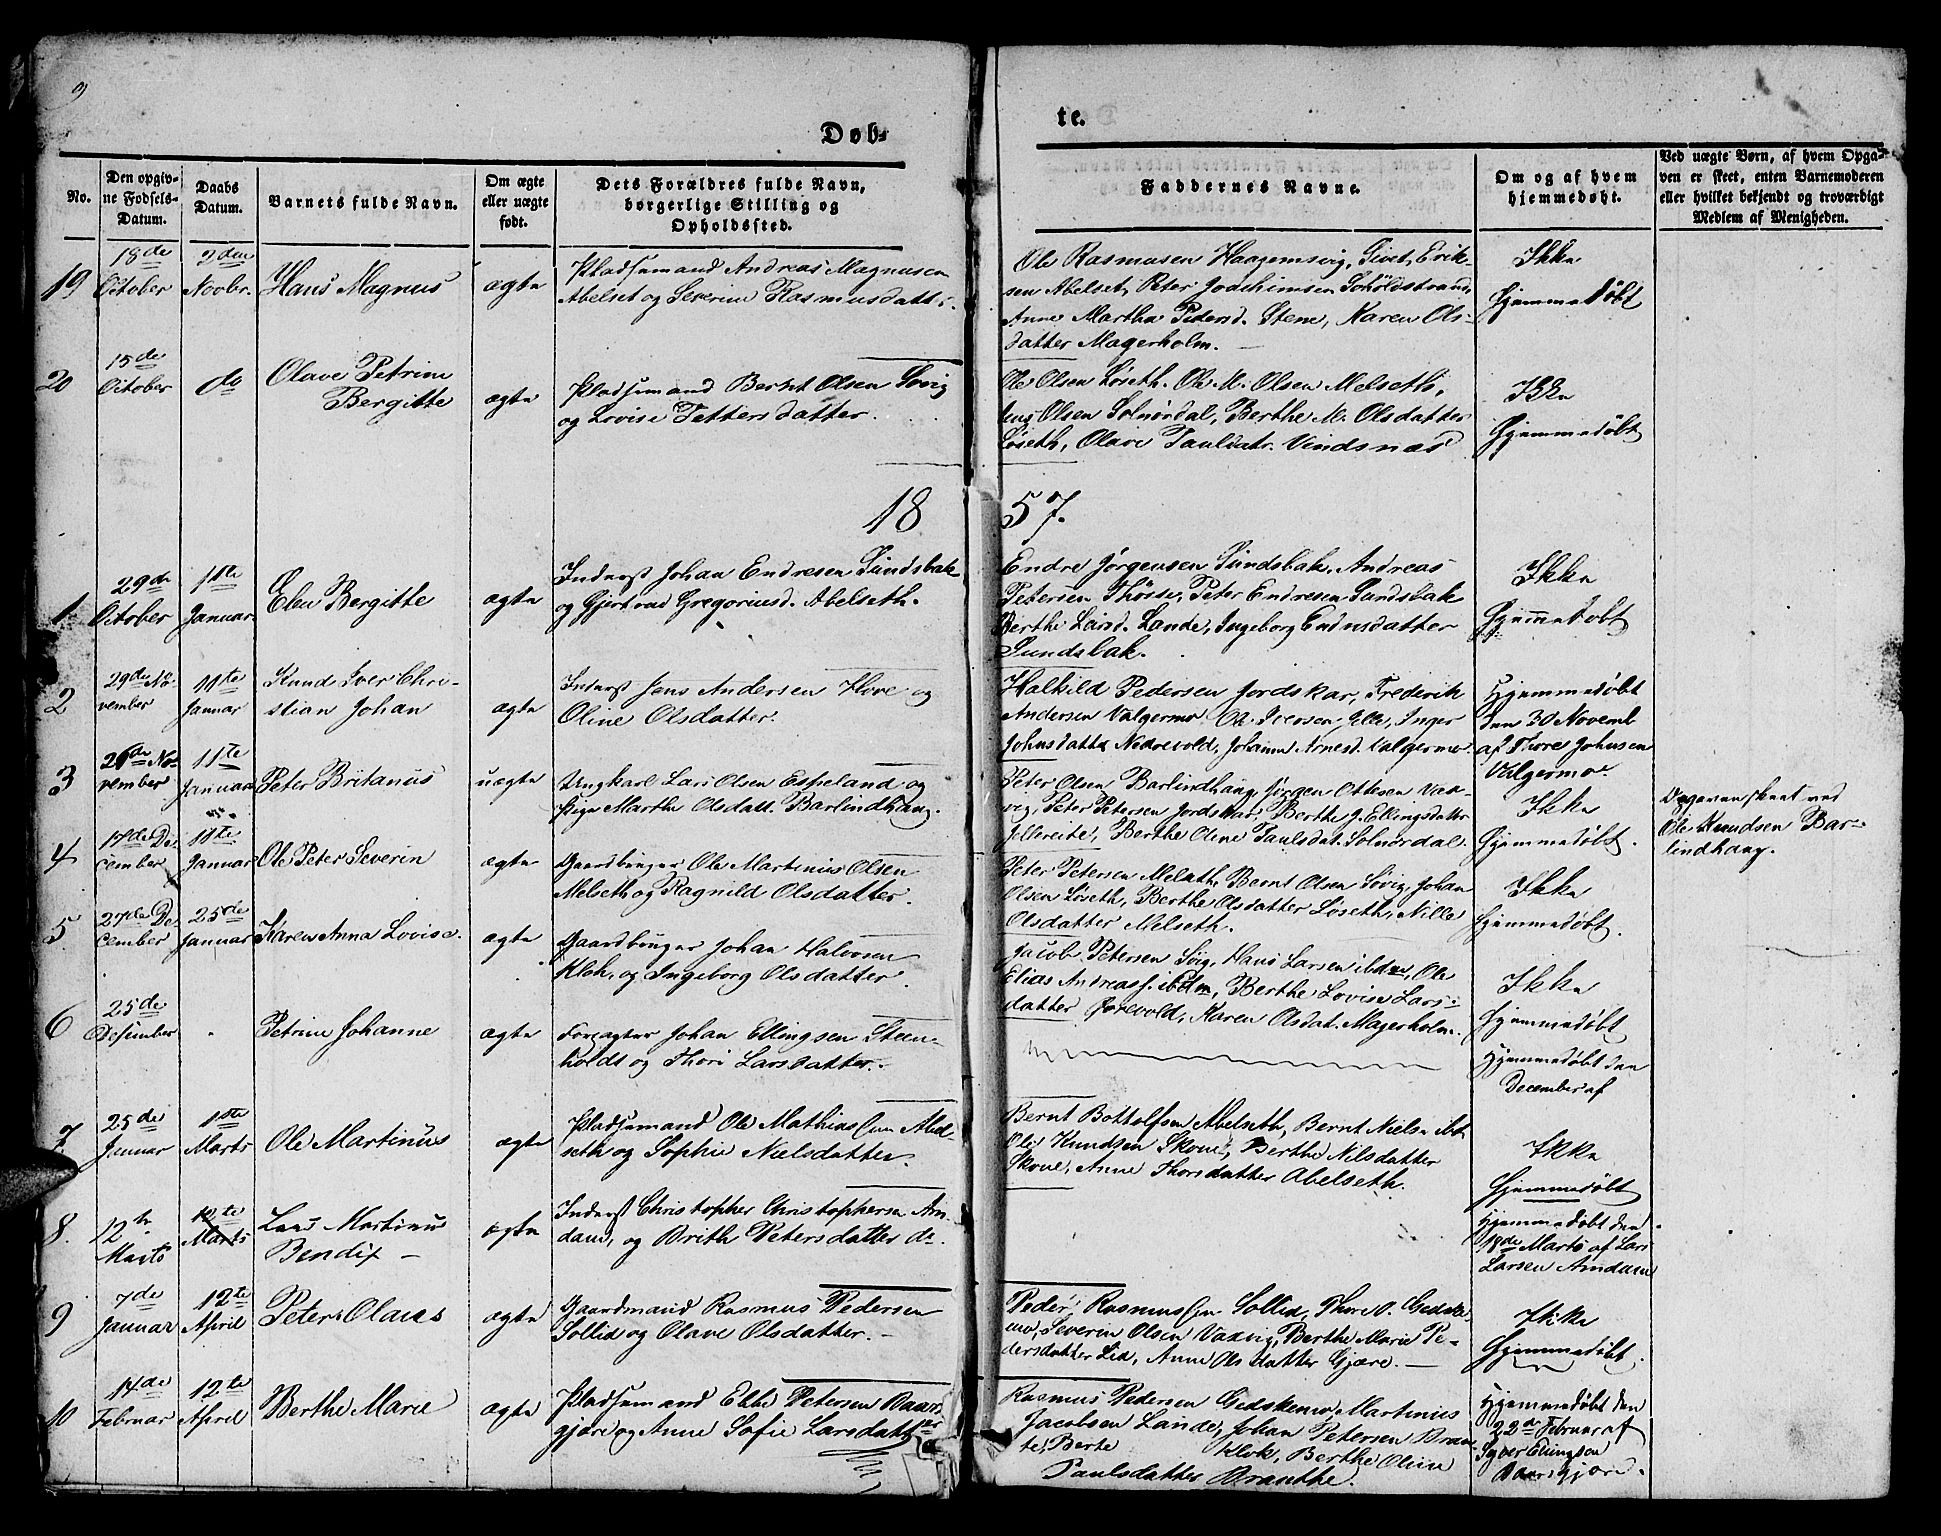 9
Døb-
te.
No.
Den opgiv-
ne Fødsels-
Datum.
Daabs
Datum.
Barnets fulde Navn.
Om ægte
eller uægte
født.
Dets Forældres fulde Navn,
borgerlige Stilling og
Opholdssted.
Faddernes Navne.
Om og af hvem
hjemmedøbt.
Ved uægte Børn, af hvem Opga-
ven er skeet, enten Barnemoderen
eller hvilket bekjendt og troværdigt
Medlem af Menigheden.
19
18de
October
2den
Novbr.
Hans Magnus
ægte
Pladsemand Andreas Magnusen
Abelset og Severine Rasmusdatter.
Ole Rasmusen Haagensvig, Sivert Erik-
sen Abelset, Peter Jochimsen Schöldstrand,
Anne Martha Pedersd. Stene, Karen Ols-
datter Magerholm.
Ikke
Hjemmedøbt
20
15de
October
do
Olave Petrine
Bergitte
ægte
Pladsemand Bernt Olsen Søvig
og Lovise Pettersdatter.
Ole Olsen Løseth. Ole M. Olsen Melseth,
Olsen Solnørdal, Berthe M. Olsdatter
Løseth, Olave Paulsdatr. Vindsnæs
Ikke
Hjemmedøbt
1857.
1
29de
October
11te
Januar
Elen Bergitte
ægte
Inderst Johan Endresen Sundsbak
og Gjertrud Gregoriusd. Abelseth.
Endre Jørgensen Sundsbak, Andreas
Petersen Thösse, Peter Endresen Sundsbak
Berthe Larsd. Lande, Ingeborg Endresdatter
Sundsbak.
Ikke
Hjemmedøbt
2
29de No-
vember
11te
Januar
Knud Iver Chri-
stian Johan
ægte
Inderst Jens Andersen Hove og
Oline Olsdatter.
Halkild Pedersen Jordskar, Frederik
Andersen Valgermo Ole Iversen Jelle, Inger
Johnsdatter Nedrevold, Johanne Arnesd. Valgermo.
Hjemmedøbt
den 30 Novemb
af Thore Johnsen
Valgermoe.
3
26de No-
vember
11te
Januar
Peter Britanus
uægte
Ungkarl Lars Olsen Espeland og
Pige Marthe Olsdatt. Barlindhaug.
Peter Olsen Barlindhaug, Jørgen Ottesen Vax-
vig, Peter Petersen Jordskar, Berthe J. Ellingsdatter
Jellereite, Berthe Oline Paulsdat. Solnørdal.
Ikke
Hjemmedøbt.
Opgaven skeet ved
Ole Knudsen Bar-
lindhaug.
4
17de De-
cember
11te
Januar
Ole Peter Severin
ægte
Gaardbruger Ole Martinus Olsen
Melseth og Ragnild Olsdatter.
Peter Petersen Melseth, Bernt Olsen Søvig, Johan
Olsen Løseth, Berthe Olsdatter Løseth, Nille
Olsdatter Melseth.
Ikke
Hjemmedøbt.
5
27de De-
cember
25de
Januar
Karen Anna Lovise.
ægte
Gaardbruger Johan Halvorsen
Klok, og Ingeborg Olsdatter.
Jacob Petersen Søvig, Hans Larsen ibdm, Ole
Elias Andreass. ibdm, Berthe Lovise Lars-
datter Førevold, Karen Olsdat. Magerholm.
Ikke
Hjemmedøbt
6
25de
Desember
Petrine Johanne
ægte
Forpagter Johan Ellingsen Steen-
holdt og Thori Larsdatter.
Hjemmedøbt den
December af
7
25de
Januar
1ste
Marts
Ole Martinus
ægte
Pladsemand Ole Mathiassen Abel-
seth og Sophie Nielsdatter.
Bernt Bottolfsen Abelseth, Bernt Niels.
Ole Knudsen Skone, Berthe Nilsdatter
Skone, Anne Thorsdatter Abelseth.
Ikke
Hjemmedøbt
8.
12te
Marts
12te
Marts
Lars Martinus
Bendix
ægte
Inderst Christopher Christophersen Am-
dam, og Brith Petersdatter do.
Hjemmedøbt den
18de Marts af Lars
Larsen Amdam
9
7de
Januar
12te
April
Peter Olaus
ægte
Gaardmand Rasmus Pedersen
Sollid og Olave Olsdatter.
Peder Rasmussen Sollid, Thore O. Gedske-
mo, Severin Olsen Vaxvig, Berthe Marie Pe-
dersdatter Lid, Anne Olsdatter Gjære.
Ikke
Hjemmedøbt.
10
14de
Februar
12te
April
Berthe Marie
ægte
Pladsemand Elling Petersen Baars-
gjære og Anne Sofie Larsdatter
Rasmus Pedersen Gedskemo, Martinus
Jacobsen Lande, Johan Petersen Bran-
te, Berte Klok, Berthe Oline
Paulsdatter Branthe.
Hjemmedøbt den
22de Februar af
Syver Ellingsen
Baarsgjære.